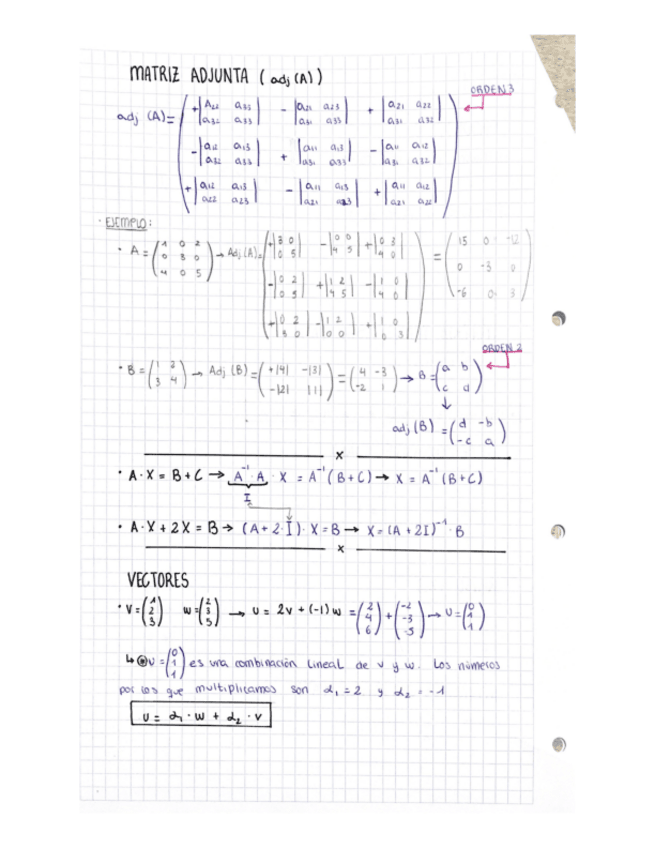 MATRIZ ADJUNTA (adj (A))
ORDEN 3
adj (A)= ( +|A22 a33; a32 a33| -|a21 a23; a31 a33| +|a21 a22; a31 a32|
-|a12 a13; a32 a33| +|a11 a13; a31 a33| -|a11 a12; a31 a32|
+|a12 a13; a22 a23| -|a11 a13; a21 a23| +|a11 a12; a21 a22| )
· EJEMPLO:
· A = (1 0 2; 0 3 0; 4 0 5) → Adj (A)= ( +|3 0; 0 5| -|0 0; 4 5| +|0 3; 4 0| = (15 0 -12
-|0 2; 0 5| +|1 2; 4 5| -|1 0; 4 0| 0 -3 0
+|0 2; 3 0| -|1 2; 0 0| +|1 0; 0 3| ) -6 0 3)
ORDEN 2
· B = (1 2; 3 4) → Adj (B) = (+|4| -|3|; -|2| |1|) = (4 -3; -2 1) → B = (a b; c d)
↓
adj (B) = (d -b; -c a)
x
· A·X = B+C → A⁻¹·A · X = A⁻¹(B+C) → X = A⁻¹(B+C)
I
· A·X + 2X = B → (A + 2·I)·X = B → X = (A + 2I)⁻¹·B
x
VECTORES
· V = (1; 2; 3) w = (2; 3; 5) → U = 2v + (-1)w = (2; 4; 6) + (-2; -3; -5) → U = (0; 1; 1)
↳ U = (0; 1; 1) es una combinación lineal de v y w. Los números
por los que multiplicamos son α₁ = 2 y α₂ = -1
U = α₁ · w + α₂ · v